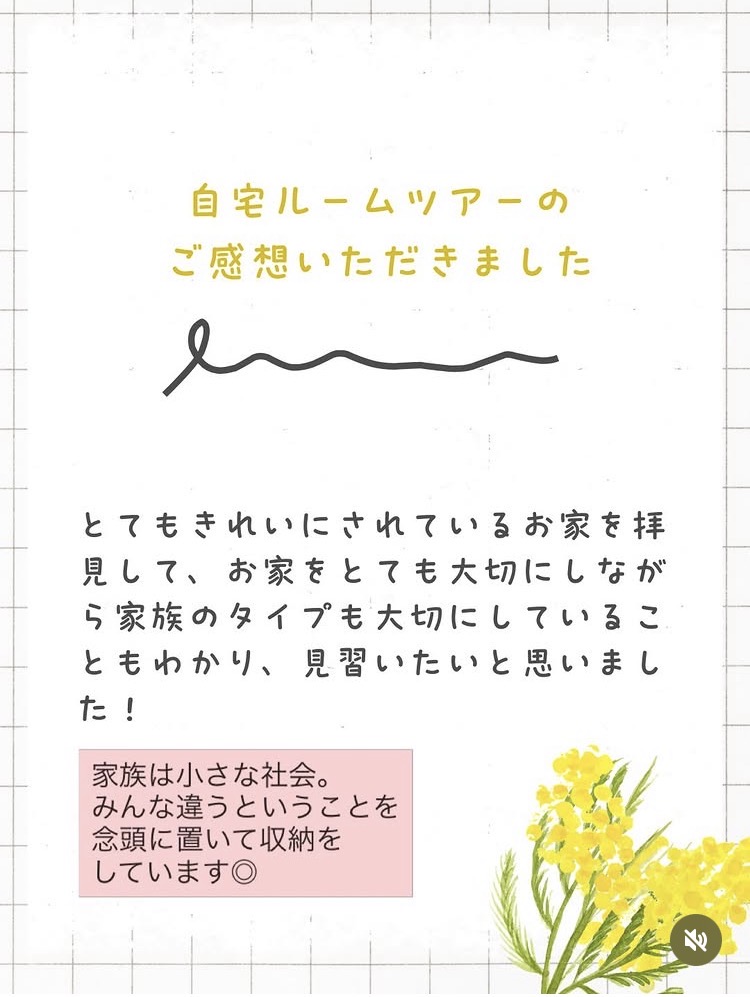 自宅ルームツアーの
ご感想いただきました
とてもきれいにされているお家を拝
見して、お家をとても大切にしなが
ら家族のタイプも大切にしているこ
ともわかり、見習いたいと思いまし
た！
家族は小さな社会。
みんな違うということを
念頭に置いて収納を
しています◎